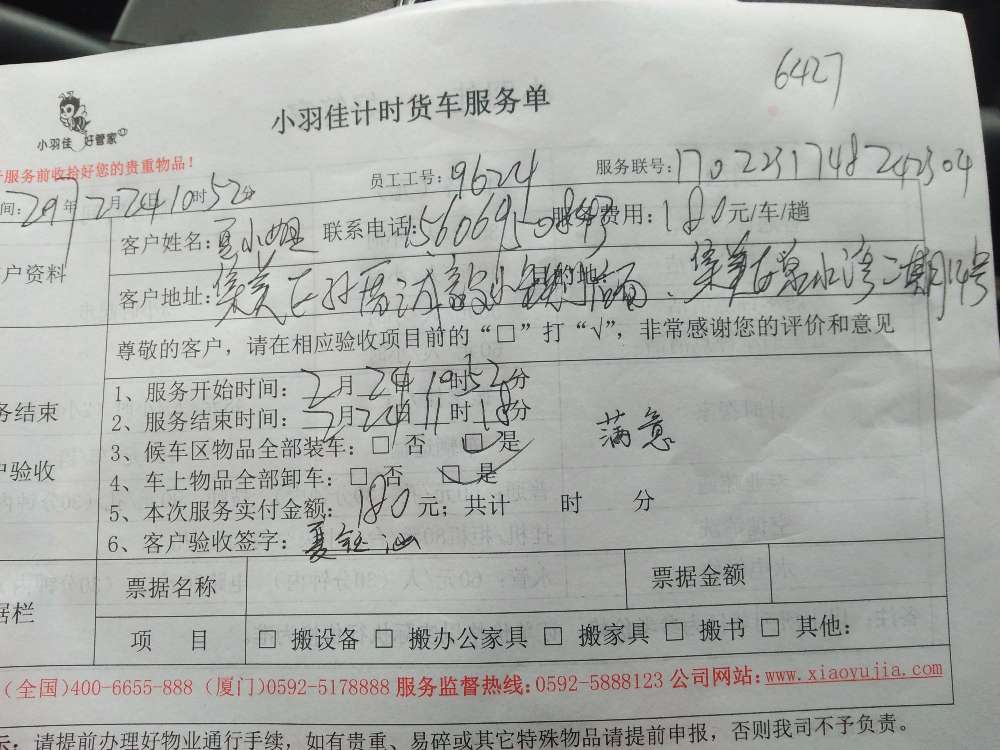 6427
小羽佳计时货车服务单
小羽佳 好管家
服务前收拾好您的贵重物品！
员工工号：9624 服务联号：1702231748242304
间：2017年2月24日10时52分
客户姓名：夏小姐 联系电话：15606950893 服务费用：180元/车/趟
户资料
客户地址：集美区孙厝 集美区 水湾二期14号
尊敬的客户，请在相应验收项目前的“□”打“√”，非常感谢您的评价和意见
1、服务开始时间：2月24日10时52分
务结束 2、服务结束时间：2月24日11时18分
3、候车区物品全部装车：□ 否 □ 是 满意
户验收 4、车上物品全部卸车：□ 否 □ 是
5、本次服务实付金额：180元；共计 时 分
6、客户验收签字：夏
票据名称 票据金额
据栏
项 目 □ 搬设备 □ 搬办公家具 □ 搬家具 □ 搬书 □ 其他：
（全国)400-6655-888（厦门)0592-5178888 服务监督热线：0592-5888123 公司网站：www.xiaoyujia.com
示：请提前办理好物业通行手续，如有贵重、易碎或其它特殊物品请提前申报，否则我司不予负责。